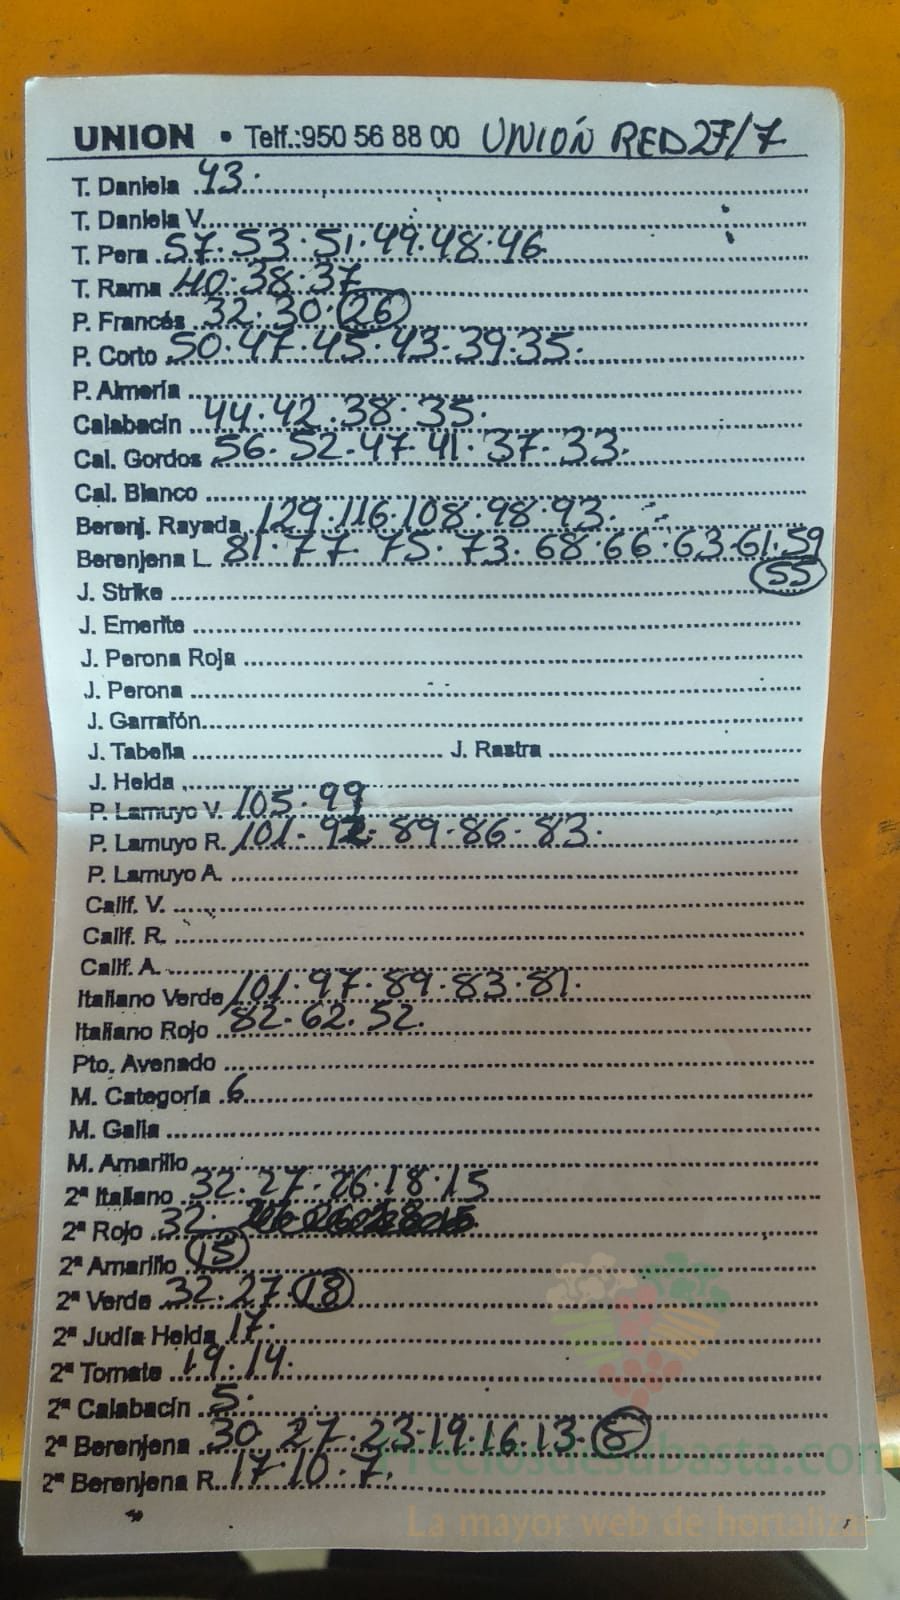 UNION • Telf.:950 56 88 00 UNIÓN RED 27/7
T. Daniela 43.
T. Daniela V.
T. Pera 57.53.51.49.48.46
T. Rama 40.38.37
P. Francés 32.30.26
P. Corto 50.47.45.43.39.35.
P. Almería
Calabacín 44.42.38.35.
Cal. Gordos 56.52.47.41.37.33.
Cal. Blanco
Berenj. Rayada 129.116.108.98.93.
Berenjena L. 81.77.75.73.68.66.63.61.59
55
J. Strike
J. Emerite
J. Perona Roja
J. Perona
J. Garrafón
J. Tabella J. Rastra
J. Helda
P. Lamuyo V. 105.99
P. Lamuyo R. 101.92.89.86.83.
P. Lamuyo A.
Calif. V.
Calif. R.
Calif. A.
Italiano Verde 101.97.89.83.81.
Italiano Rojo 82.62.52.
Pto. Avenado
M. Categoría 6
M. Galia
M. Amarillo
2ª Italiano 32.27.26.18.15
2ª Rojo 32.
2ª Amarillo 15
2ª Verde 32.27.18
2ª Judía Helda 17.
2ª Tomate 19.14.
2ª Calabacín 5.
2ª Berenjena 30.27.23.19.16.13.8
Preciosdesubasta.com
2ª Berenjena R. 17.10.7.
La mayor web de hortalizas